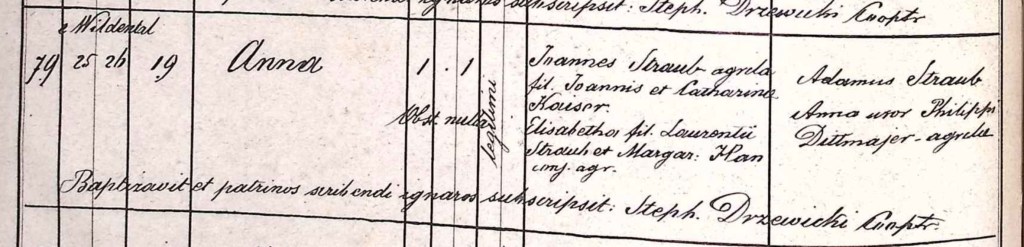 subscripsit: Steph. Drzewicki Cooptr
z Wildental
79 25 26 19 Anna 1 . 1
Obst. nulla
legitimi
Joannes Straub agrcla
fil. Joannis et Catharina
Kaiser.
Elisabetha fil. Laurentii
Straub et Margar: Han
conj. agr.
Adamus Straub
Anna uxor Philippi
Dittmajer - agrcla
Baptizavit et patrinos scribendi ignaros subscripsit: Steph. Drzewicki Cooptr.